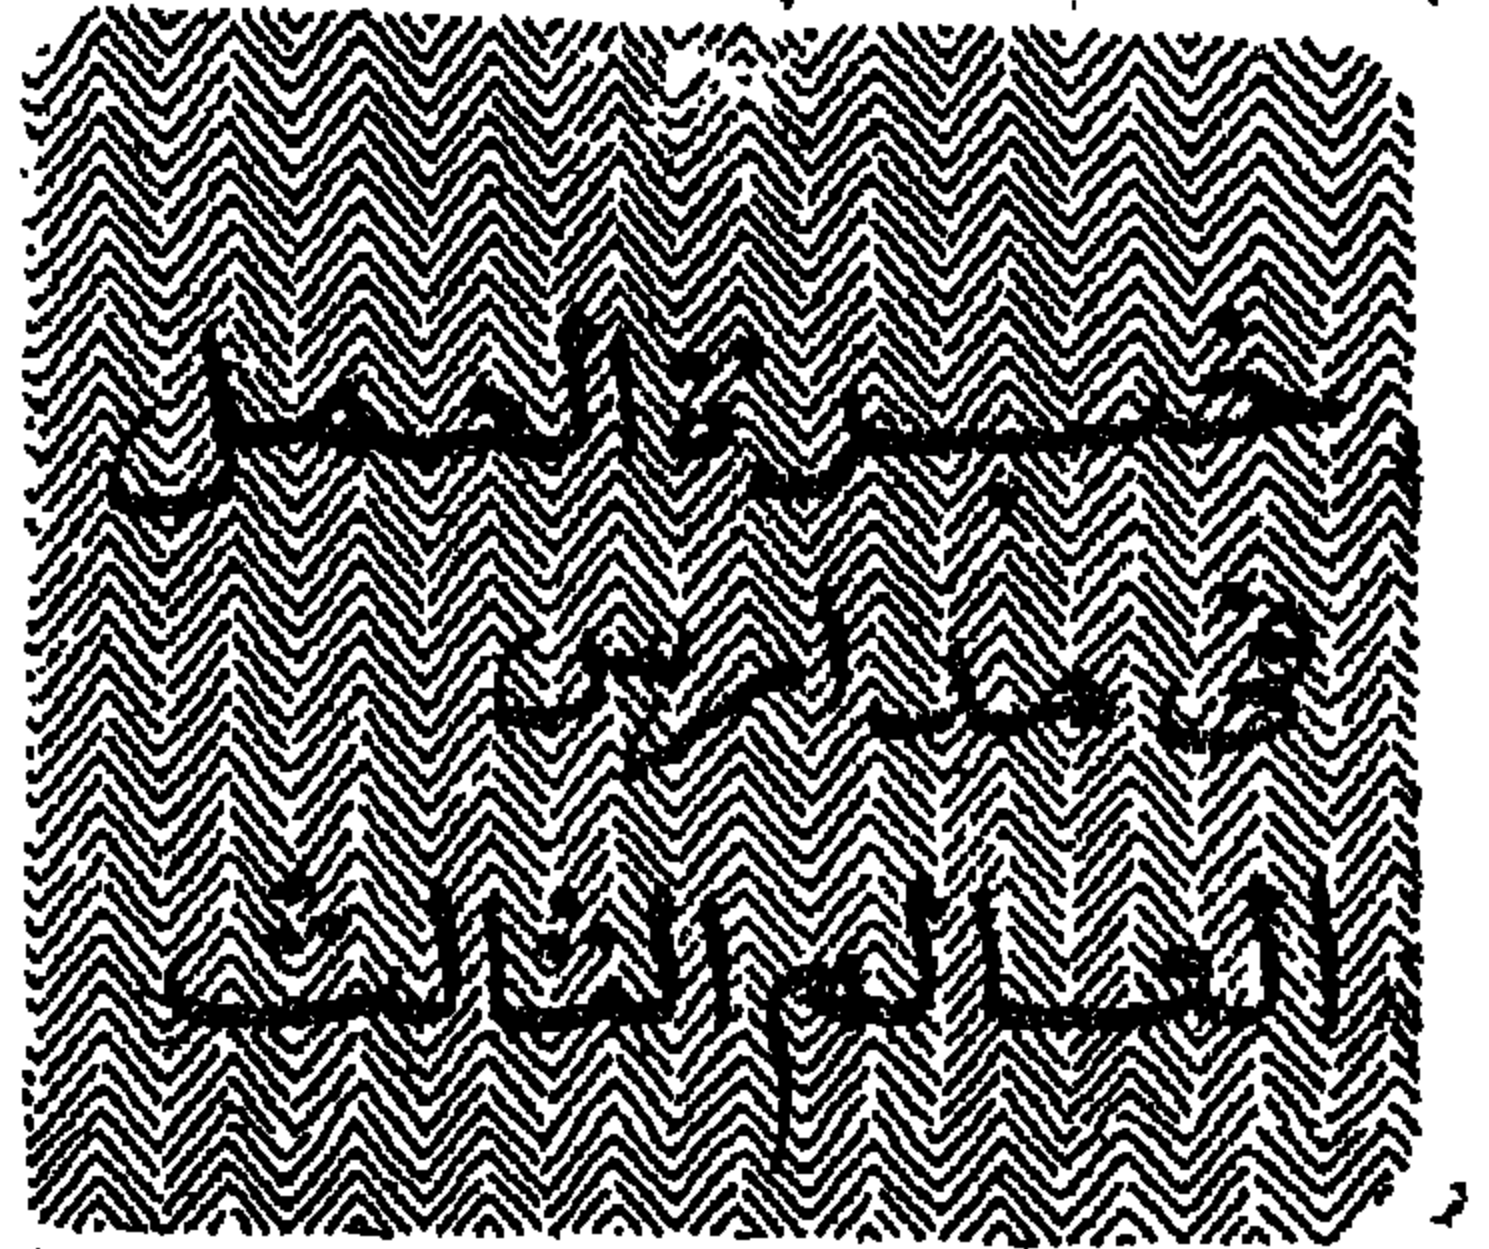 خبرة العمل
في مدارس
العالم الثالث